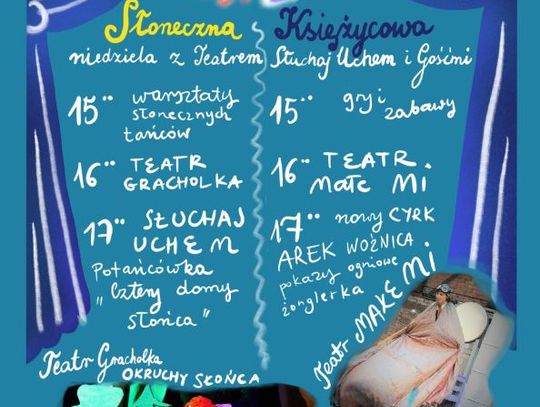 Słoneczna
niedziela z Teatrem
15°° warsztaty
słonecznych
tańców
16°° TEATR
GRACHOLKA
17°° SŁUCHAJ
UCHEM
Potańcówka
"Cztery domy
słońca"
Teatr Gracholka
OKRUCHY SŁOŃCA
Księżycowa
Słuchaj Uchem i Gośćmi
15°° gry i
zabawy
16°° TEATR
Małe Mi
17°° nowy CYRK
AREK WOŹNICA
pokazy ogniowe
żonglerka
Teatr MAŁE MI